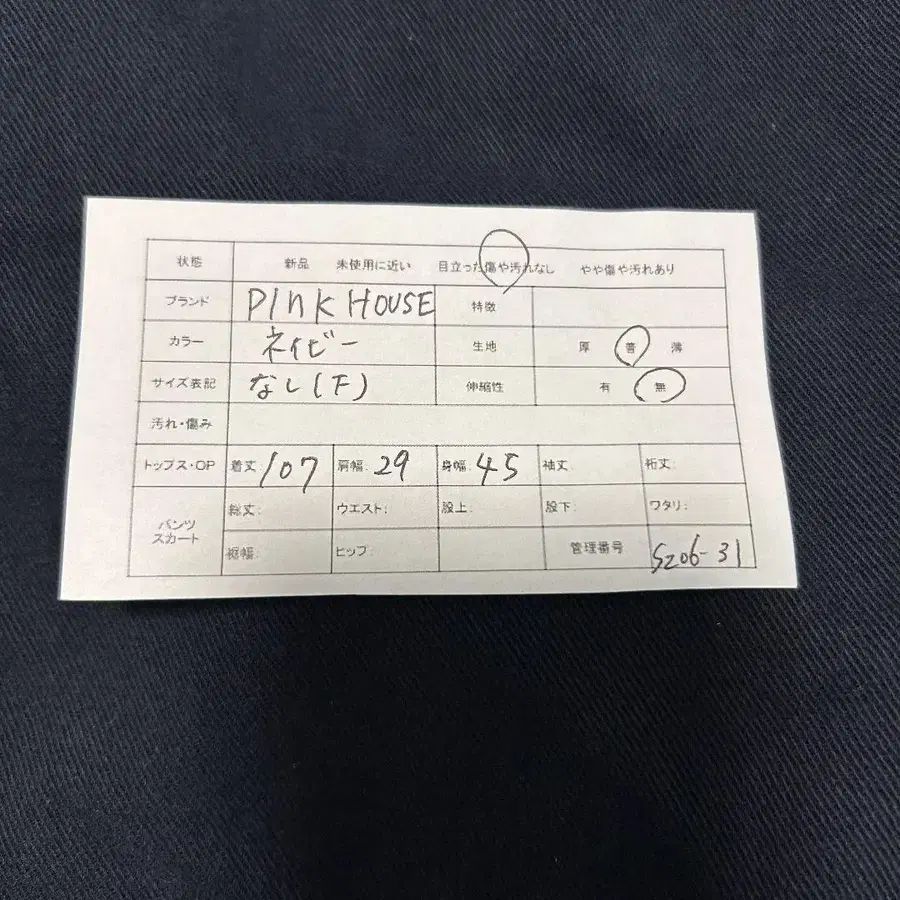 状態 新品 未使用に近い 目立った傷や汚れなし やや傷や汚れあり
ブランド PInk HOUSE 特徴
カラー ネイビー 生地 厚 普 薄
サイズ表記 なし(F) 伸縮性 有 無
汚れ・傷み
トップス・OP 着丈: 107 肩幅: 29 身幅: 45 袖丈: 裄丈:
パンツ スカート
総丈: ウエスト: 股上: 股下: ワタリ:
裾幅: ヒップ: 管理番号 S206-31